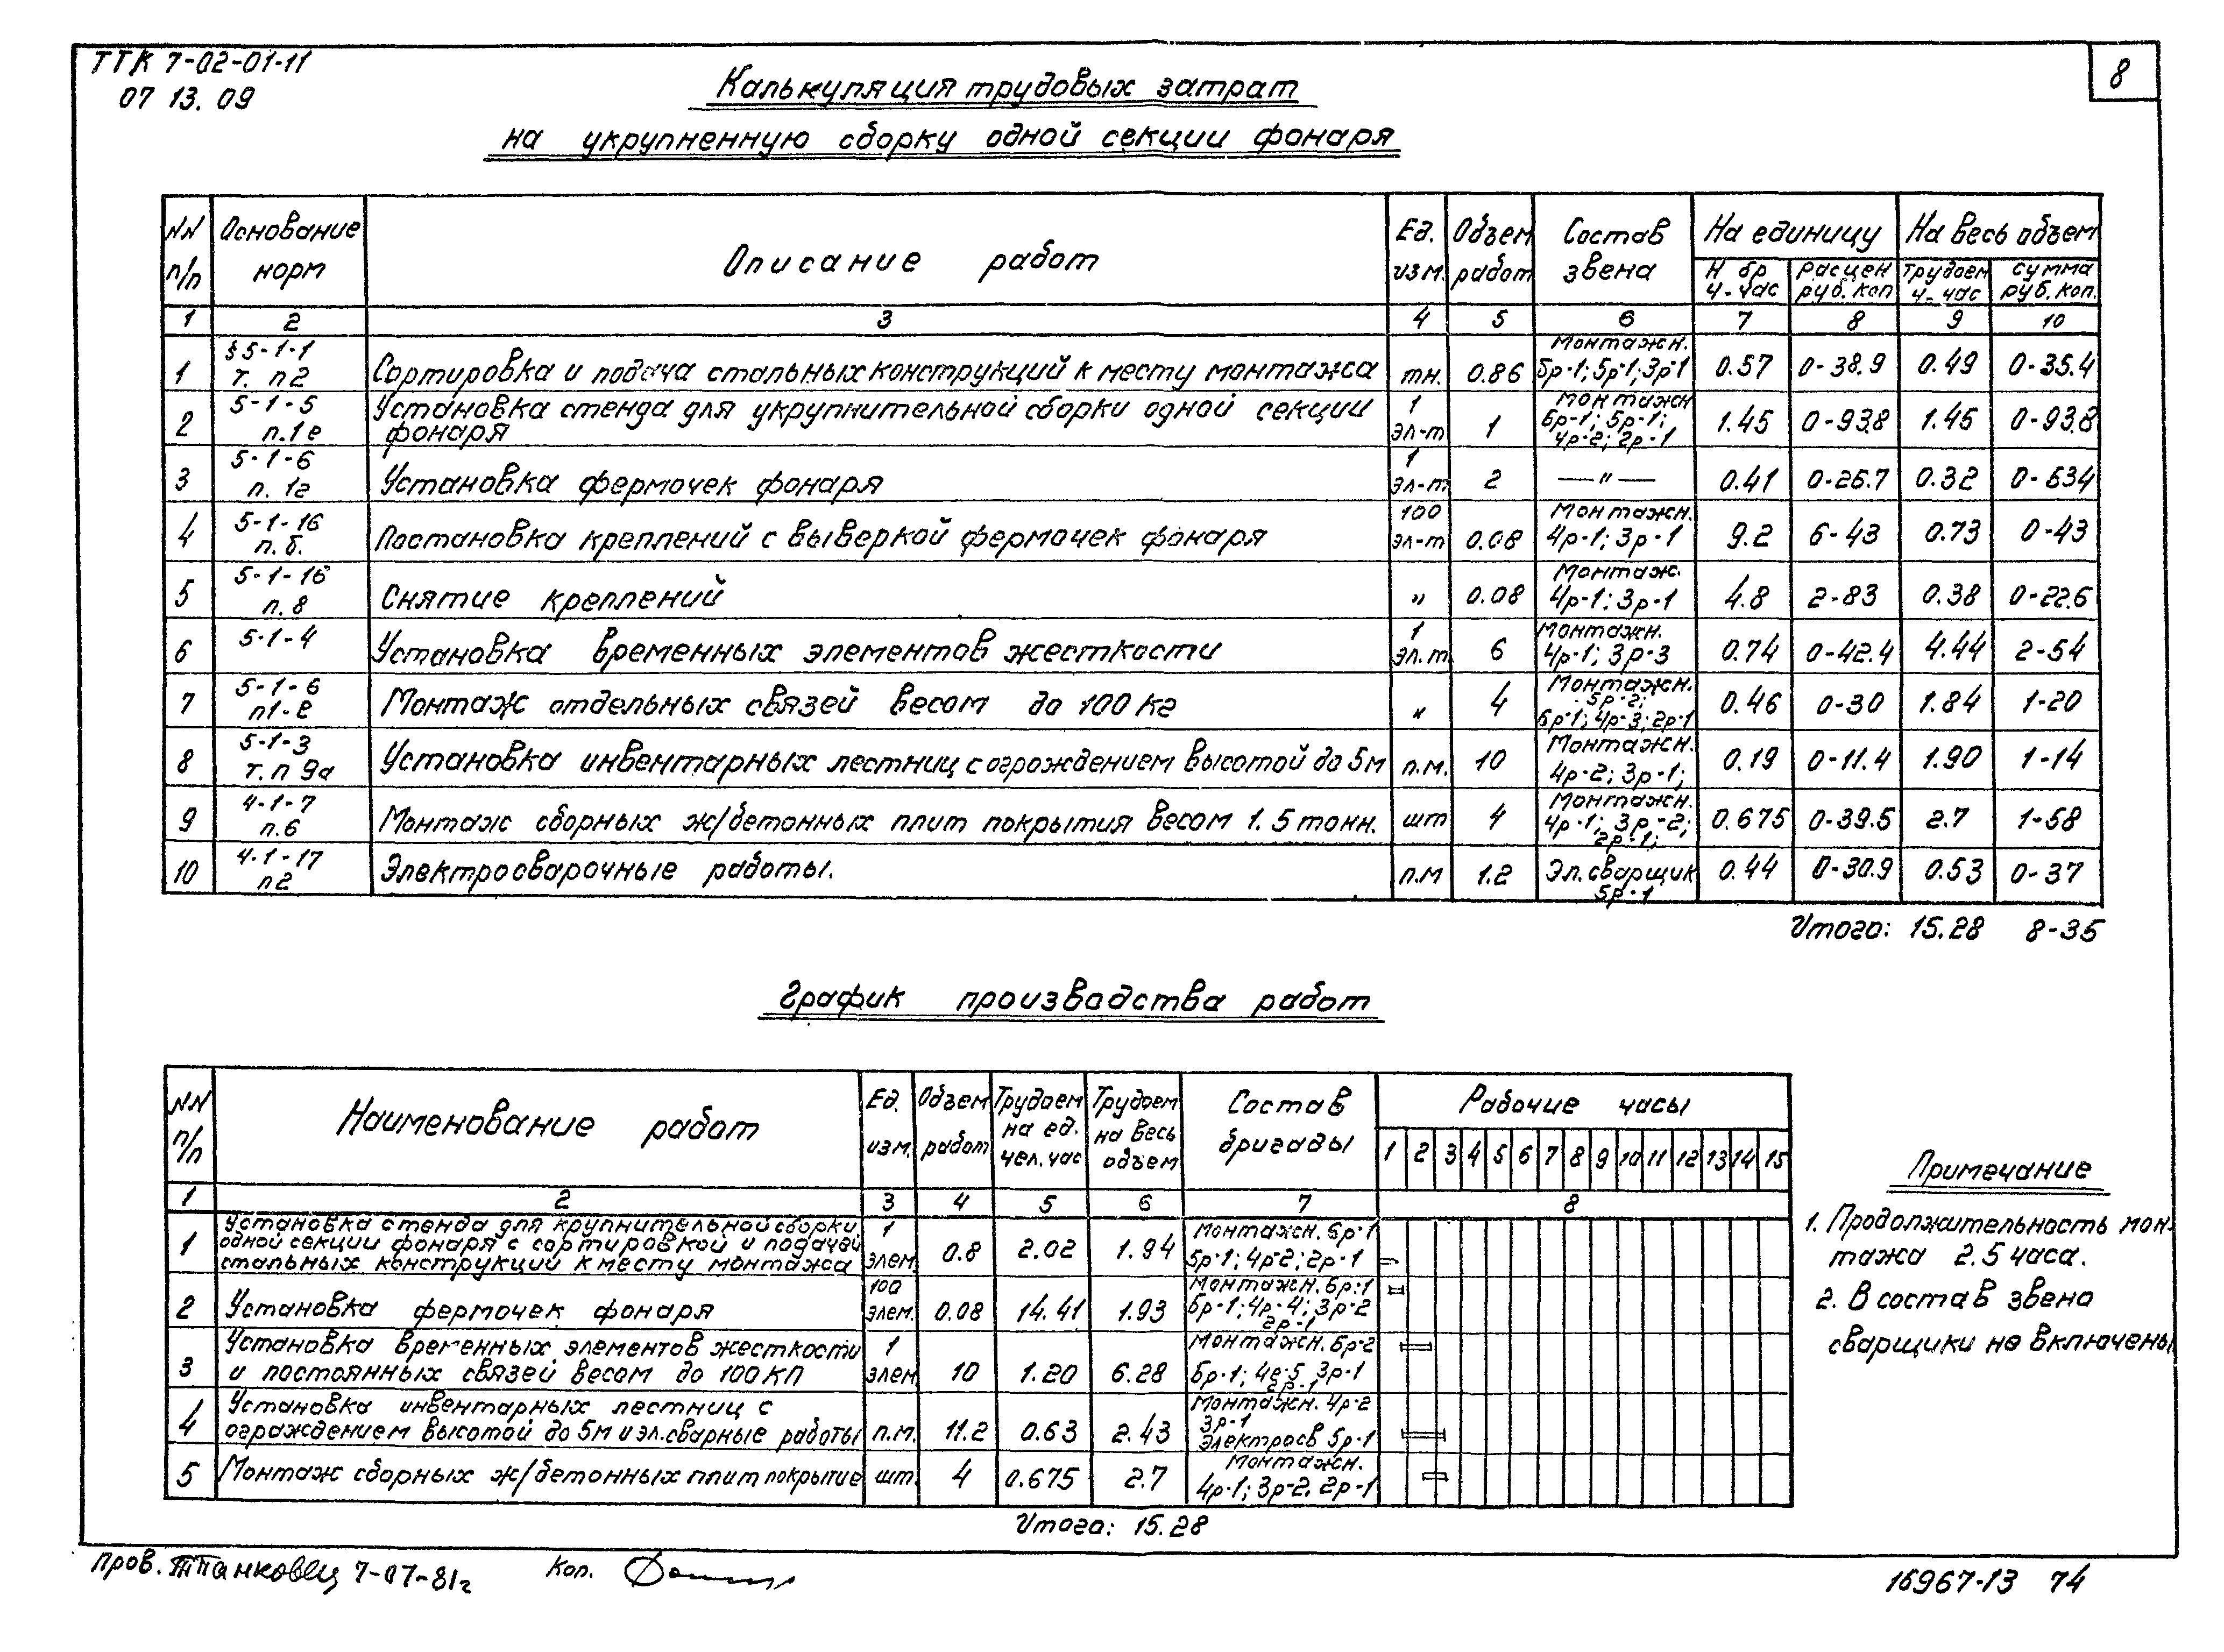 ТТК 7-02-01-11
07 13. 09
8
Калькуляция трудовых затрат
на укрупненную сборку одной секции фонаря
NN п/п | Основание норм | Описание работ | Ед. изм. | Объем работ | Состав звена | На единицу | На весь объем
Н вр ч-час | Расцен руб. коп | Трудоем ч-час | Сумма руб. коп.
1 | 2 | 3 | 4 | 5 | 6 | 7 | 8 | 9 | 10
1 | §5-1-1 т. п2 | Сортировка и подача стальных конструкций к месту монтажа | тн. | 0.86 | Монтажн. 6р-1; 5р-1; 3р-1 | 0.57 | 0-38.9 | 0.49 | 0-35.4
2 | 5-1-5 п.1е | Установка стенда для укрупнительной сборки одной секции фонаря | 1 эл-т | 1 | Монтажн 6р-1; 5р-1; 4р-2; 2р-1 | 1.45 | 0-93.8 | 1.45 | 0-93.8
3 | 5-1-6 п. 1г | Установка фермочек фонаря | 1 эл-т | 2 | —"— | 0.41 | 0-26.7 | 0.32 | 0-534
4 | 5-1-16 п. б. | Постановка креплений с выверкой фермочек фонаря | 100 эл-т | 0.08 | Монтажн. 4р-1; 3р-1 | 9.2 | 6-43 | 0.73 | 0-43
5 | 5-1-16 п. 8 | Снятие креплений | " | 0.08 | Монтаж. 4р-1; 3р-1 | 4.8 | 2-83 | 0.38 | 0-22.6
6 | 5-1-4 | Установка временных элементов жесткости | 1 эл.т | 6 | Монтажн. 4р-1; 3р-3 | 0.74 | 0-42.4 | 4.44 | 2-54
7 | 5-1-6 п1-е | Монтаж отдельных связей весом до 100 кг | " | 4 | Монтажн. 5р-2; 6р-1; 4р-3; 2р-1 | 0.46 | 0-30 | 1.84 | 1-20
8 | 5-1-3 т. п 9а | Установка инвентарных лестниц с ограждением высотой до 5м | п.м. | 10 | Монтажн. 4р-2; 3р-1; | 0.19 | 0-11.4 | 1.90 | 1-14
9 | 4-1-7 п.6 | Монтаж сборных ж/бетонных плит покрытия весом 1.5 тонн. | шт | 4 | Монтажн. 4р-1; 3р-2; 2р-1; | 0.675 | 0-39.5 | 2.7 | 1-58
10 | 4-1-17 п2 | Электросварочные работы. | п.м | 1.2 | Эл.сварщик 5р-1 | 0.44 | 0-30.9 | 0.53 | 0-37
Итого: 15.28 8-35
График производства работ
NN п/п | Наименование работ | Ед. изм. | Объем работ | Трудоем на ед. чел. час | Трудоем на весь объем | Состав бригады | Рабочие часы
1 2 3 4 5 6 7 8 9 10 11 12 13 14 15
1 | 2 | 3 | 4 | 5 | 6 | 7 | 8
1 | Установка стенда для крупнительной сборки одной секции фонаря с сортировкой и подачей стальных конструкций к месту монтажа | 1 элем. | 0.8 | 2.02 | 1.94 | Монтажн. 6р-1 5р-1; 4р-2; 2р-1
2 | Установка фермочек фонаря | 100 элем. | 0.08 | 14.41 | 1.93 | Монтажн. 6р-1 5р-1; 4р-4; 3р-2 2р-1
3 | Установка временных элементов жесткости и постоянных связей весом до 100 КП | 1 элем. | 10 | 1.20 | 6.28 | Монтажн. 5р-2 6р-1; 4р-5 3р-1 2р-1
4 | Установка инвентарных лестниц с ограждением высотой до 5м и эл.сварные работы | п.м. | 11.2 | 0.63 | 2.43 | Монтажн. 4р-2 3р-1 электросв 5р-1
5 | Монтаж сборных ж/бетонных плит покрытие | шт. | 4 | 0.675 | 2.7 | Монтажн. 4р-1; 3р-2. 2р-1
Итого: 15.28
Примечание
1. Продолжительность мон-
тажа 2.5 часа.
2. В состав звена
сварщики не включены
Пров. 7-07-81г
Коп.
16967-13 74